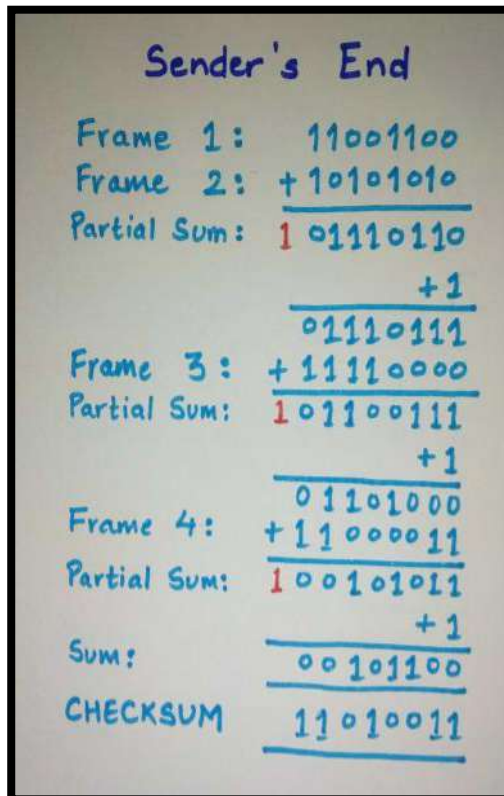 Sender's End
Frame 1: 11001100
Frame 2: +10101010
Partial Sum: 1 01110110
+1
01110111
Frame 3: +11110000
Partial Sum: 101100111
+1
01101000
Frame 4: +11000011
Partial Sum: 100101011
+1
Sum: 00101100
CHECKSUM 11010011